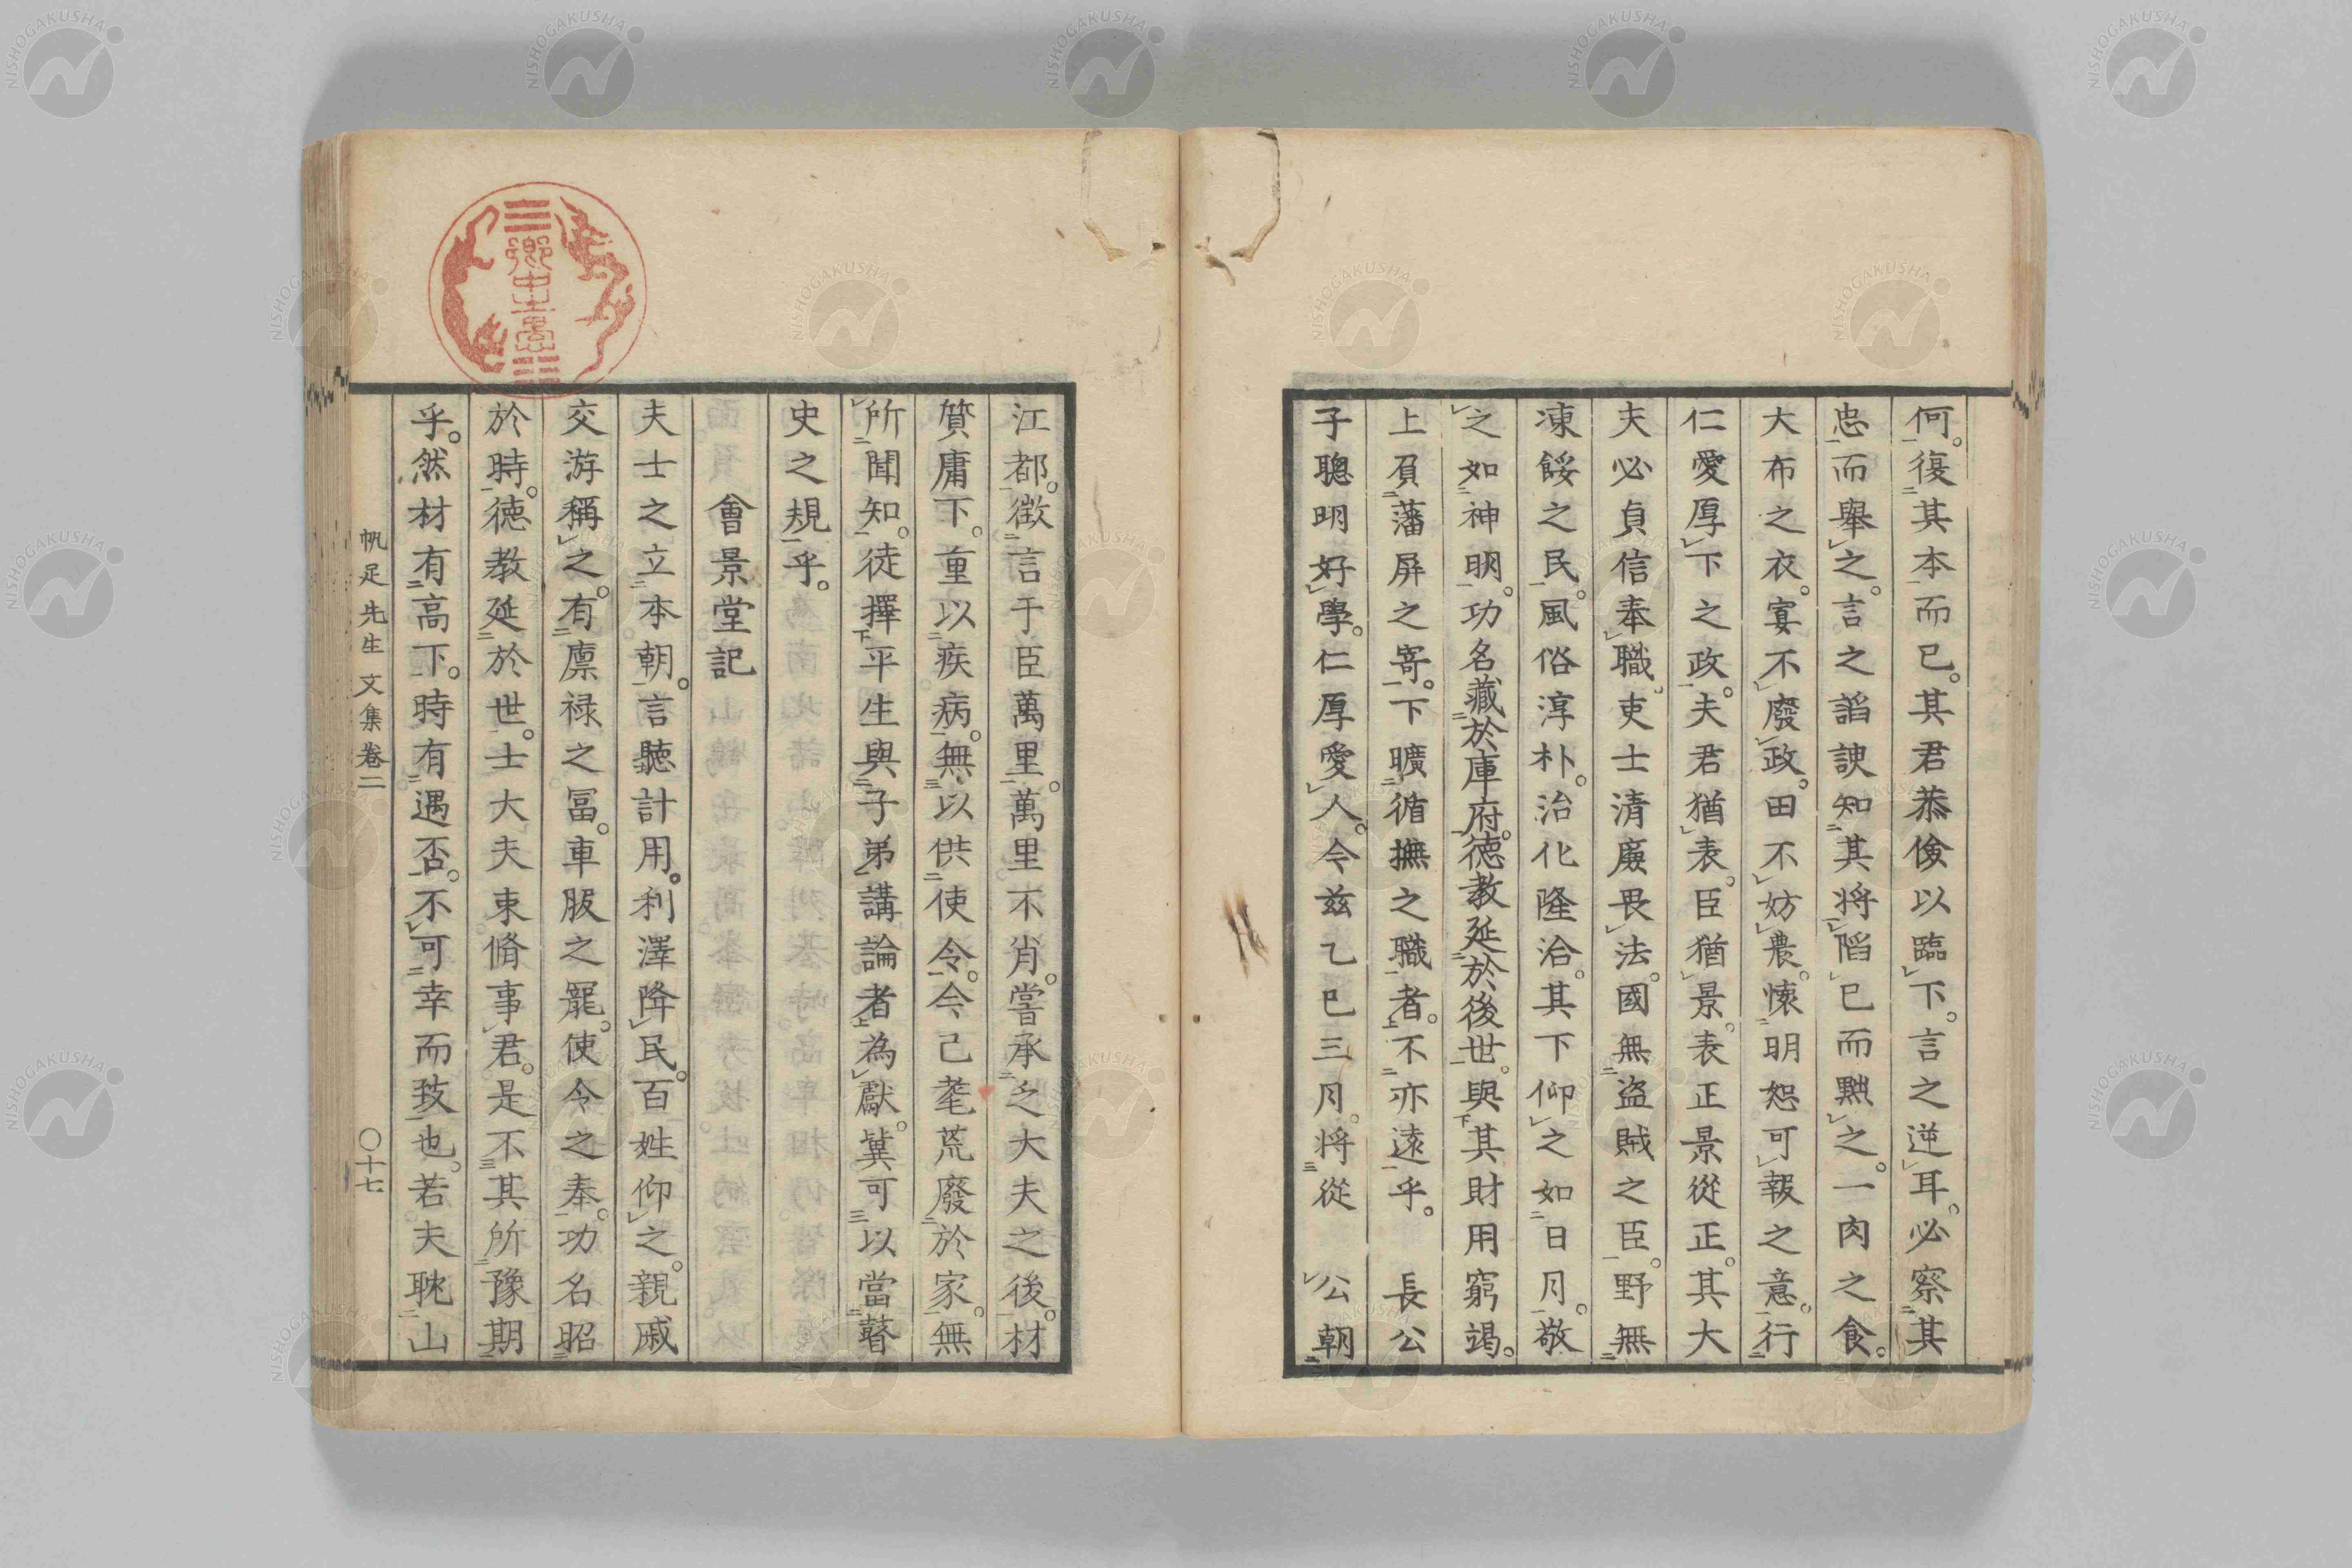 何。復其本而已。其君恭儉以臨下。言之逆耳。必察其
忠而舉之。言之諂諛知其將陷已而黜之。一肉之食。
大布之衣。宴不廢政。田不妨農。懷明恕可報之意。行
仁愛厚下之政。夫君猶表。臣猶景。表正景從正。其大
夫必貞信奉職。吏士清廉畏法。國無盜賊之臣。野無
凍餒之民。風俗淳朴。治化隆洽。其下仰之如日月。敬
之如神明。功名藏於庫府。德教延於後世。與其財用窮竭。
上負藩屏之寄。下曠循撫之職者。不亦遠乎。 長公
子聰明好學。仁厚愛人。今茲乙巳三月。將從 公朝
江都。徵言于臣萬里。萬里不肖。嘗承乏大夫之後。材
質庸下。重以疾病。無以供使令。今已耄荒廢於家。無
所聞知。徒擇平生與子弟講論者為獻。冀可以當瞽
史之規乎。
會景堂記
夫士之立本朝。言聽計用。利澤降民。百姓仰之。親戚
交游稱之。有廪禄之冨。車服之寵。使令之奉。功名昭
於時。德教延於世。士大夫束脩事君。是不其所豫期
乎。然材有高下。時有遇否。不可幸而致也。若夫耽山
帆足先生文集卷二
〇十七
NISHOGAKUSHA